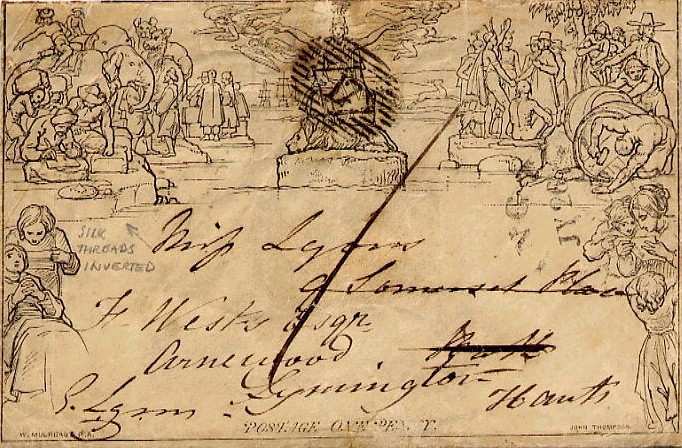 SILK
THREADS
INVERTED
Miss Lyons
Somerset Place
F. Weeks Esqr.
Arnewood
Bath
Lymington
Hants
POSTAGE ONE PENNY.
W. MULREADY, R.A.
JOHN THOMPSON